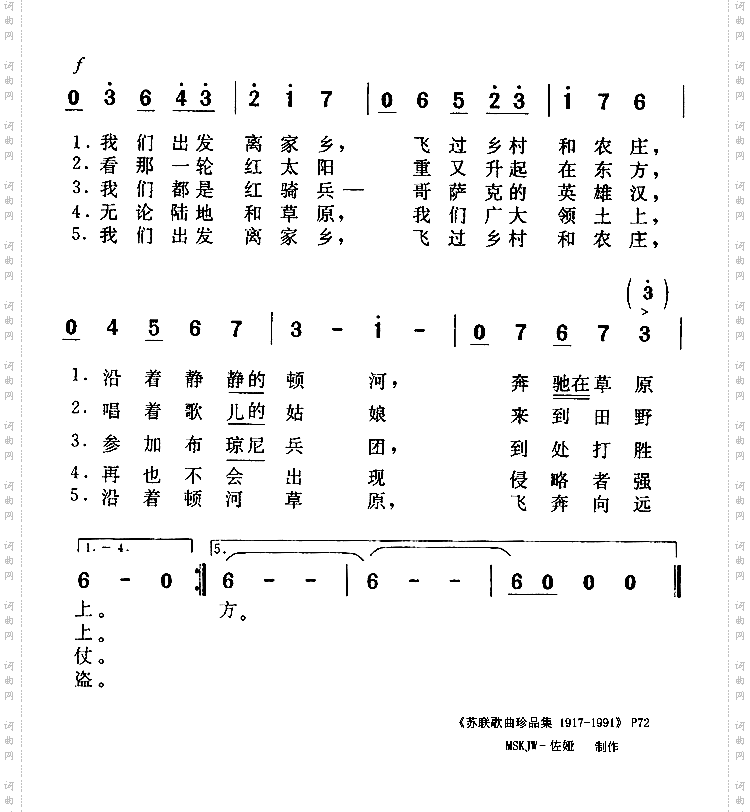 f
0 3 6 4 3 | 2 1 7 | 0 6 5 2 3 | 1 7 6 |
1. 我们出发 离家乡， 飞过乡村 和农庄，
2. 看那一轮 红太阳 重又升起 在东方，
3. 我们都是 红骑兵— 哥萨克的 英雄汉，
4. 无论陆地 和草原， 我们广大 领土上，
5. 我们出发 离家乡， 飞过乡村 和农庄，
(3)
0 4 5 6 7 | 3 - 1 - | 0 7 6 7 3 |
1. 沿着静静的顿河， 奔驰在草原
2. 唱着歌儿的姑娘 来到田野
3. 参加布琼尼兵团， 到处打胜
4. 再也不会出现 侵略者强
5. 沿着顿河草原， 飞奔向远
1.—4. 5.
6 - 0 :|| 6 - - | 6 - - | 6 0 0 0 ||
上。 方。
上。
仗。
盗。
《苏联歌曲珍品集 1917-1991》 P72
MSKJW-佐娅 制作
词曲网